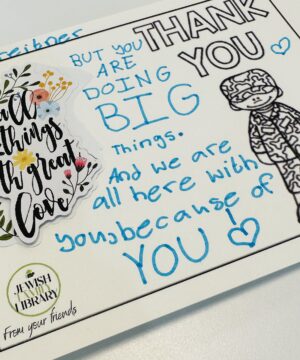 THANK
YOU
BUT YOU
ARE
DOING
BIG
Things.
And we are
all here with
you, because of
YOU!
all
things
with great
love
JEWISH
FAMILY
LIBRARY
From your friends